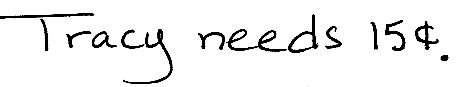 Tracy needs 15¢.